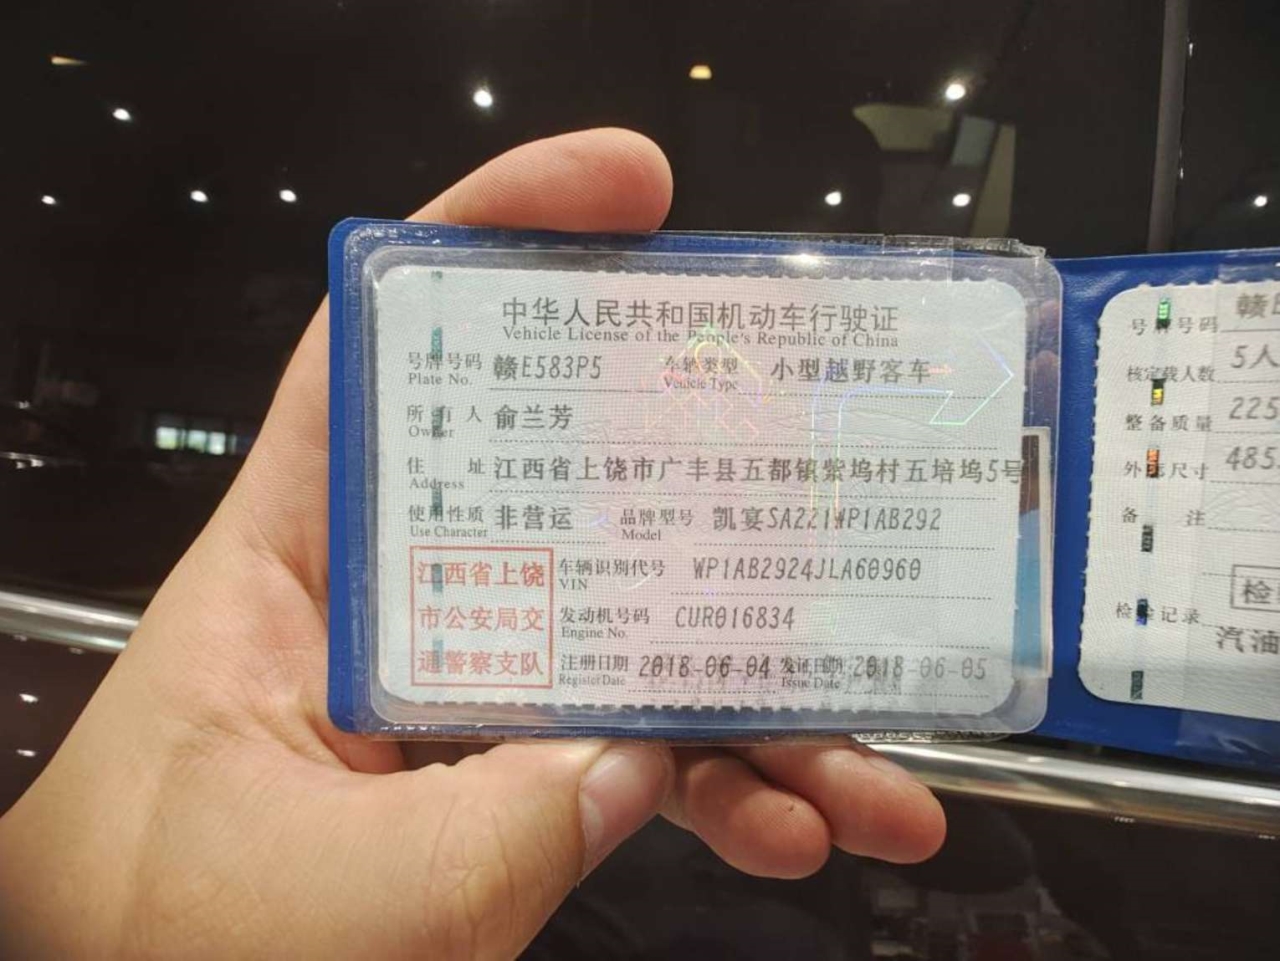 中华人民共和国机动车行驶证
Vehicle License of the People's Republic of China
号牌号码 赣E583P5 车辆类型 小型越野客车
Plate No. Vehicle Type
所有人 俞兰芳
Owner
住址 江西省上饶市广丰县五都镇紫坞村五培坞5号
Address
使用性质 非营运 品牌型号 凯宴SA221WP1AB292
Use Character Model
江西省上饶
市公安局交
通警察支队
车辆识别代号 WP1AB2924JLA60960
VIN
发动机号码 CUR016834
Engine No.
注册日期 2018-06-04 发证日期 2018-06-05
Register Date Issue Date
号牌号码 赣
核定载人数 5人
整备质量 225
外廓尺寸 485
备注
检
检验记录
汽油